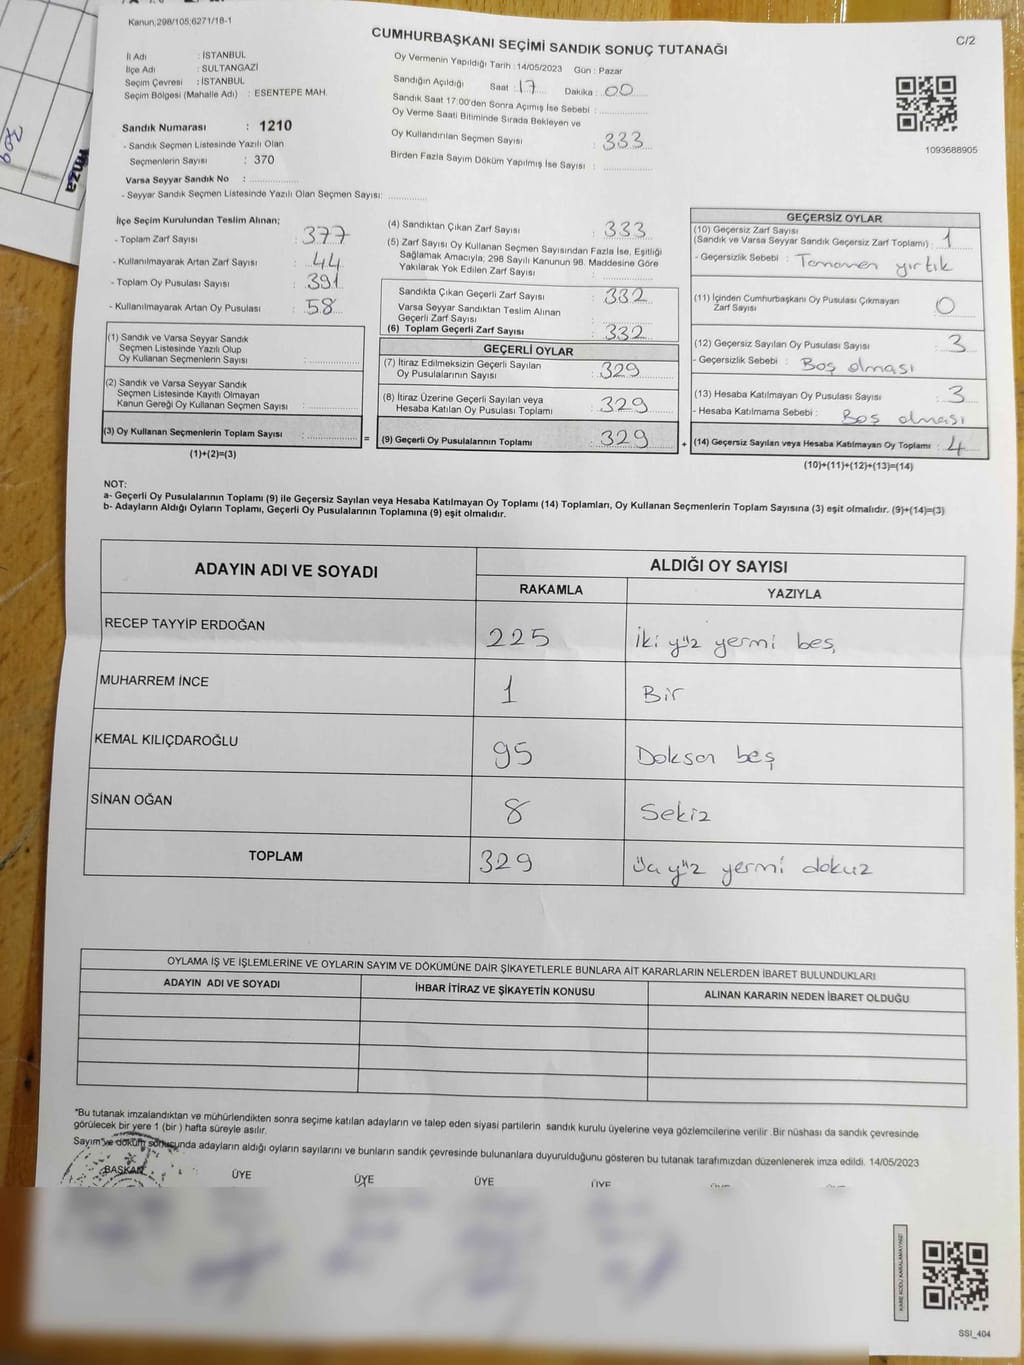 Kanun;298/105;6271/18-1
C/2
CUMHURBAŞKANI SEÇİMİ SANDIK SONUÇ TUTANAĞI
İl Adı : İSTANBUL
İlçe Adı : SULTANGAZİ
Seçim Çevresi : İSTANBUL
Seçim Bölgesi (Mahalle Adı) : ESENTEPE MAH.
Sandık Numarası : 1210
- Sandık Seçmen Listesinde Yazılı Olan
Seçmenlerin Sayısı : 370
Varsa Seyyar Sandık No :
- Seyyar Sandık Seçmen Listesinde Yazılı Olan Seçmen Sayısı:
Oy Vermenin Yapıldığı Tarih : 14/05/2023 Gün : Pazar
Sandığın Açıldığı Saat : 17 Dakika : 00
Sandık Saat 17:00'den Sonra Açımış İse Sebebi :
Oy Verme Saati Bitiminde Sırada Bekleyen ve
Oy Kullandırılan Seçmen Sayısı : 333
Birden Fazla Sayım Döküm Yapılmış İse Sayısı :
1093688905
imza
İlçe Seçim Kurulundan Teslim Alınan;
- Toplam Zarf Sayısı : 377
- Kullanılmayarak Artan Zarf Sayısı : 44
- Toplam Oy Pusulası Sayısı : 391
- Kullanılmayarak Artan Oy Pusulası : 58
(1) Sandık ve Varsa Seyyar Sandık
Seçmen Listesinde Yazılı Olup
Oy Kullanan Seçmenlerin Sayısı :
(2) Sandık ve Varsa Seyyar Sandık
Seçmen Listesinde Kayıtlı Olmayan
Kanun Gereği Oy Kullanan Seçmen Sayısı :
(3) Oy Kullanan Seçmenlerin Toplam Sayısı :
(1)+(2)=(3)
(4) Sandıktan Çıkan Zarf Sayısı : 333
(5) Zarf Sayısı Oy Kullanan Seçmen Sayısından Fazla İse, Eşitliği
Sağlamak Amacıyla; 298 Sayılı Kanunun 98. Maddesine Göre
Yakılarak Yok Edilen Zarf Sayısı :
Sandıkta Çıkan Geçerli Zarf Sayısı : 332
Varsa Seyyar Sandıktan Teslim Alınan
Geçerli Zarf Sayısı :
(6) Toplam Geçerli Zarf Sayısı : 332
GEÇERLİ OYLAR
(7) İtiraz Edilmeksizin Geçerli Sayılan
Oy Pusulalarının Sayısı : 329
(8) İtiraz Üzerine Geçerli Sayılan veya
Hesaba Katılan Oy Pusulası Toplamı : 329
= (9) Geçerli Oy Pusulalarının Toplamı : 329 +
GEÇERSİZ OYLAR
(10) Geçersiz Zarf Sayısı
(Sandık ve Varsa Seyyar Sandık Geçersiz Zarf Toplamı) : 1
- Geçersizlik Sebebi : Tamamen yırtık
(11) İçinden Cumhurbaşkanı Oy Pusulası Çıkmayan
Zarf Sayısı : 0
(12) Geçersiz Sayılan Oy Pusulası Sayısı : 3
- Geçersizlik Sebebi : Boş olması
(13) Hesaba Katılmayan Oy Pusulası Sayısı : 3
- Hesaba Katılmama Sebebi : Boş olması
(14) Geçersiz Sayılan veya Hesaba Katılmayan Oy Toplamı : 4
(10)+(11)+(12)+(13)=(14)
NOT:
a- Geçerli Oy Pusulalarının Toplamı (9) ile Geçersiz Sayılan veya Hesaba Katılmayan Oy Toplamı (14) Toplamları, Oy Kullanan Seçmenlerin Toplam Sayısına (3) eşit olmalıdır. (9)+(14)=(3)
b- Adayların Aldığı Oyların Toplamı, Geçerli Oy Pusulalarının Toplamına (9) eşit olmalıdır.
ADAYIN ADI VE SOYADI
ALDIĞI OY SAYISI
RAKAMLA YAZIYLA
RECEP TAYYİP ERDOĞAN 225 İki yüz yermi beş
MUHARREM İNCE 1 Bir
KEMAL KILIÇDAROĞLU 95 Doksan beş
SİNAN OĞAN 8 Sekiz
TOPLAM 329 üç yüz yermi dokuz
OYLAMA İŞ VE İŞLEMLERİNE VE OYLARIN SAYIM VE DÖKÜMÜNE DAİR ŞİKAYETLERLE BUNLARA AİT KARARLARIN NELERDEN İBARET BULUNDUKLARI
ADAYIN ADI VE SOYADI İHBAR İTİRAZ VE ŞİKAYETİN KONUSU ALINAN KARARIN NEDEN İBARET OLDUĞU
*Bu tutanak imzalandıktan ve mühürlendikten sonra seçime katılan adayların ve talep eden siyasi partilerin sandık kurulu üyelerine veya gözlemcilerine verilir .Bir nüshası da sandık çevresinde
görülecek bir yere 1 (bir ) hafta süreyle asılır.
Sayım ve döküm sonucunda adayların aldığı oyların sayılarını ve bunların sandık çevresinde bulunanlara duyurulduğunu gösteren bu tutanak tarafımızdan düzenlenerek imza edildi. 14/05/2023
BAŞKAN ÜYE ÜYE ÜYE ÜYE
KARE KODU KARALAMAYINIZ!
SSI_404